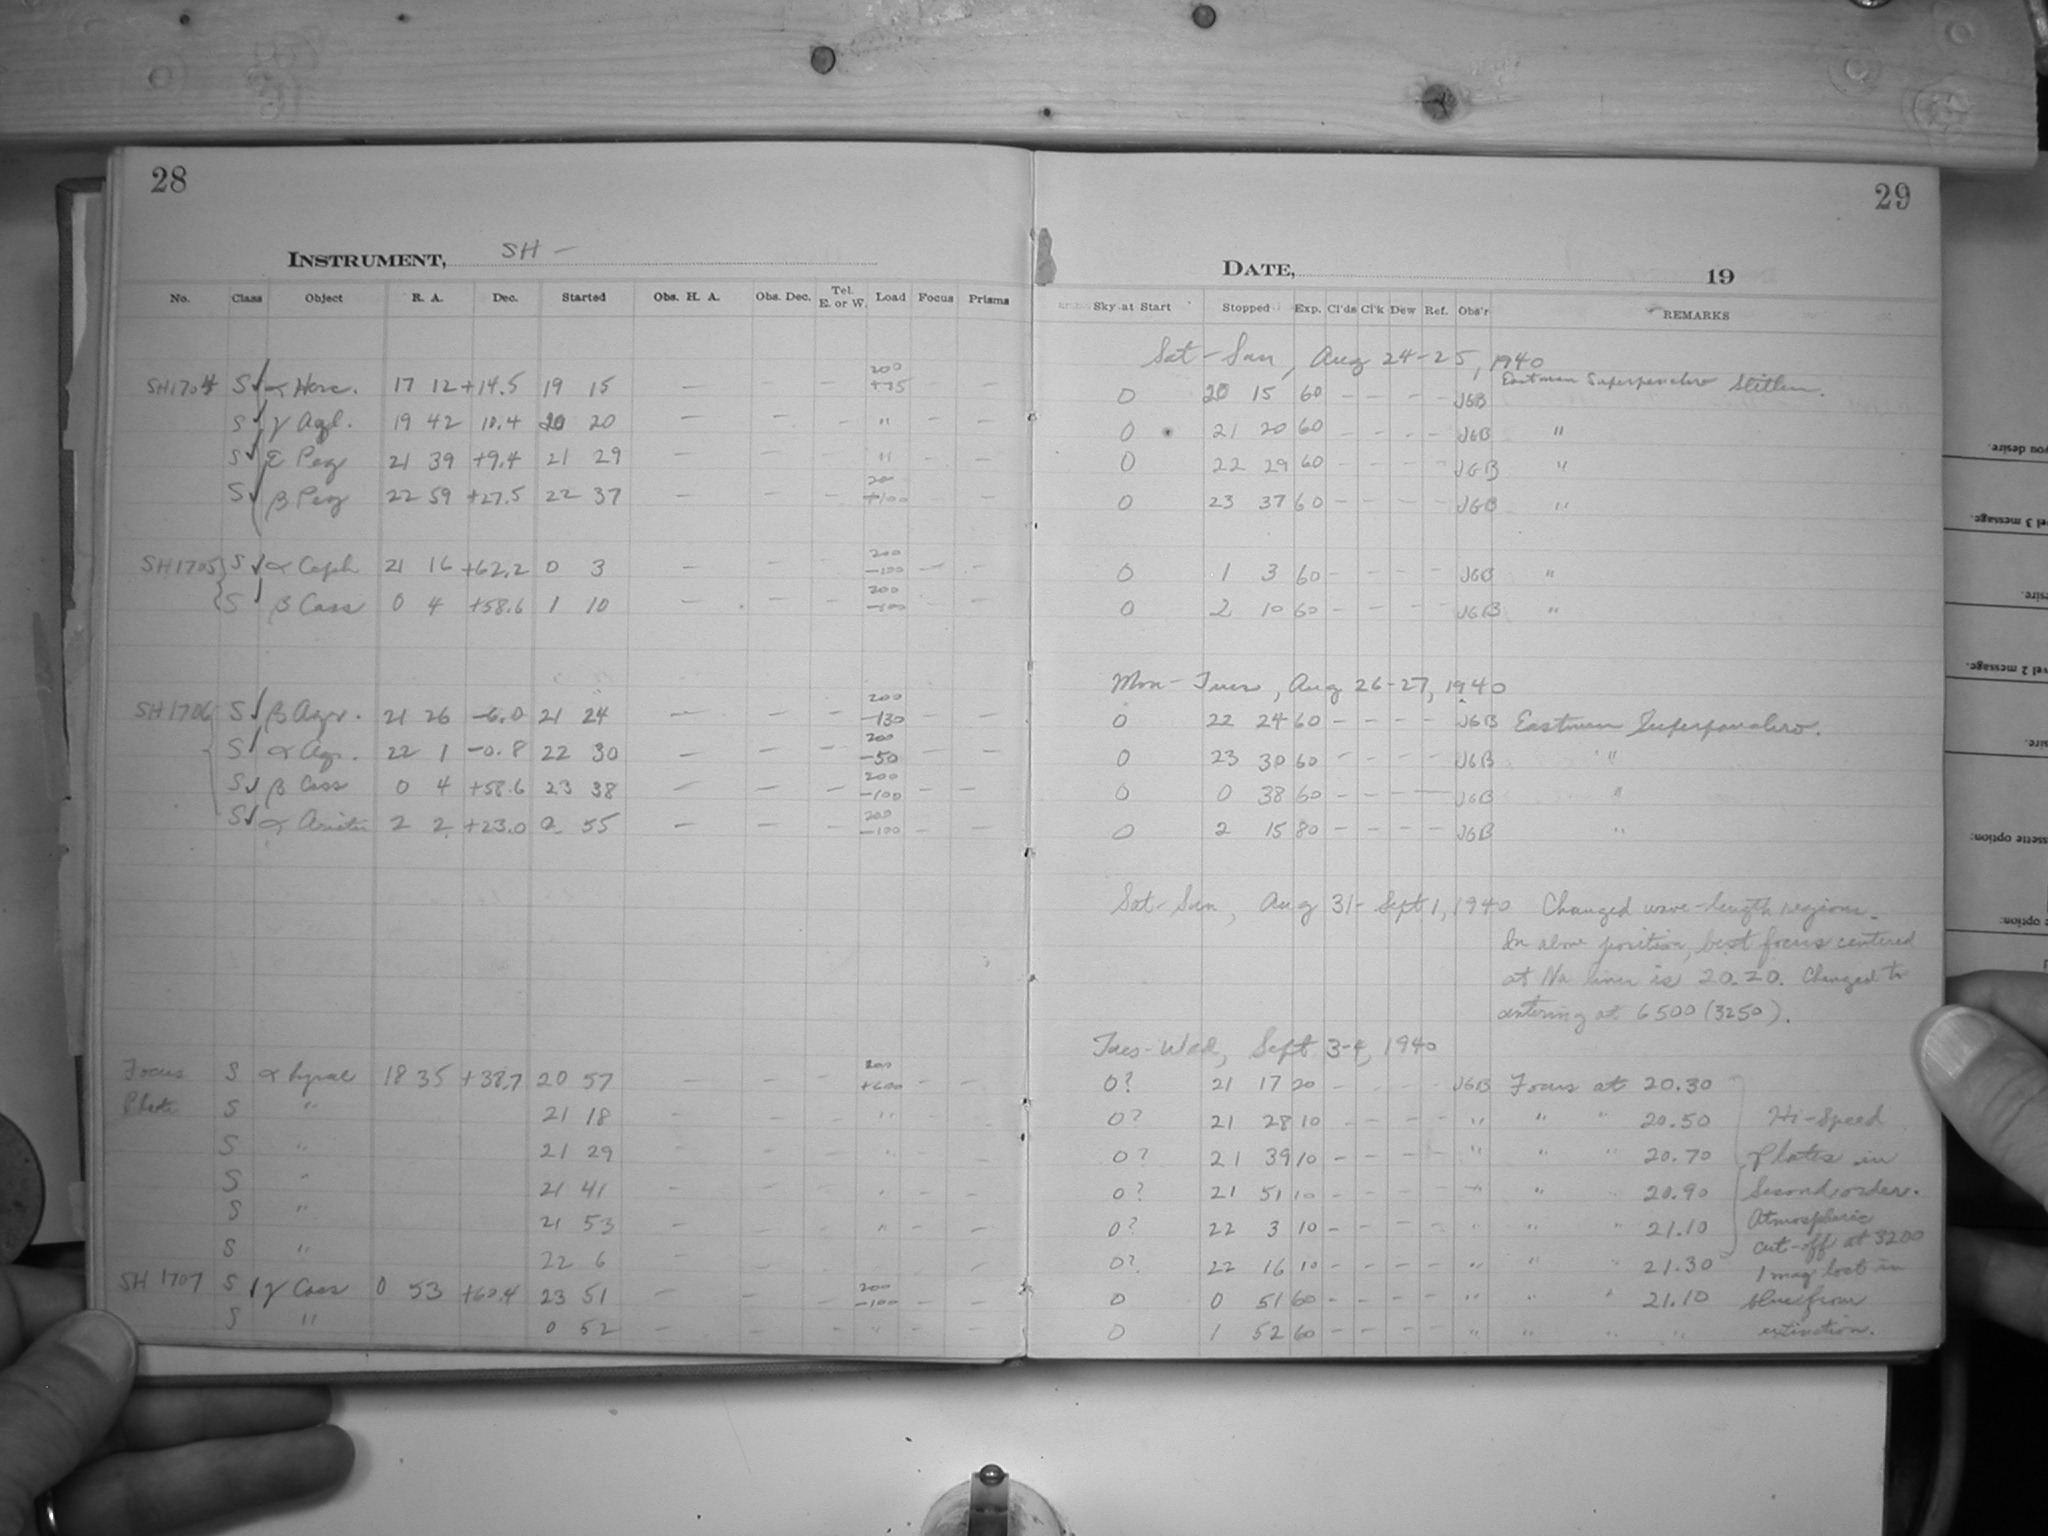 28
INSTRUMENT, SH —
No. Class Object R. A. Dec. Started Obs. H. A. Obs. Dec. Tel. E. or W. Load Focus Prisms
SH1704 S ✓ α Herc. 17 12 +14.5 19 15 — — — 200 +75 —
S ✓ γ Aql. 19 42 10.4 20 20 — — - " - -
S ✓ ε Peg 21 39 +9.4 21 29 — - - " - -
S ✓ β Peg 22 59 +27.5 22 37 — - - 200 +100 - -
SH1705 S ✓ α Ceph 21 16 +62.2 0 3 — - - 200 -100 - -
S ✓ β Cass 0 4 +58.6 1 10 — - - 200 -100 - -
SH1706 S ✓ β Aqr. 21 26 -6.0 21 24 — - - 200 -130 - -
S ✓ α Aqr. 22 1 -0.8 22 30 — - - 200 -50 - -
S ✓ β Cass 0 4 +58.6 23 38 — - - 200 -100 - -
S ✓ α Arietis 2 2 +23.0 0 55 — - - 200 -100 - -
Focus S α Lyrae 18 35 +38.7 20 57 - - - 200 +600 - -
Plate S " 21 18 - - - " - -
S " 21 29 - - - " - -
S " 21 41 - - - " - -
S " 21 53 - - - " - -
S " 22 6 - -
SH 1707 S ✓ γ Cass 0 53 +60.4 23 51 - - - 200 -100 - -
S " 0 52 - - - " - -
29
DATE, 19
Sky at Start Stopped Exp. Cl'ds Cl'k Dew Ref. Obs'r REMARKS
Sat-Sun, Aug 24-25, 1940
0 20 15 60 - - - - JGB Eastman Superpanchro
0 21 20 60 - - - - JGB "
0 22 29 60 - - - - JGB "
0 23 37 60 - - - - JGB "
0 1 3 60 - - - - JGB "
0 2 10 60 - - - - JGB "
Mon-Tues, Aug 26-27, 1940
0 22 24 60 - - - - JGB Eastman Superpanchro.
0 23 30 60 - - - - JGB "
0 0 38 60 - - - - JGB "
0 2 15 80 - - - - JGB "
Sat-Sun, Aug 31- Sept 1, 1940 Changed wave-length regions.
In above position, best focus centered
at Na lines is 20.20. Changed to
centering at 6500 (3250).
Tues-Wed, Sept 3-4, 1940
0? 21 17 20 - - - - JGB Focus at 20.30
0? 21 28 10 - - - - " " " 20.50 Hi-Speed
0? 21 39 10 - - - - " " " 20.70 Plates in
0? 21 51 10 - - - - " " " 20.90 Second order.
0? 22 3 10 - - - - " " " 21.10 Atmospheric
cut-off at 3200
0? 22 16 10 - - - - " " " 21.30 1 mag lost in
0 0 51 60 - - - - " " " 21.10 blue from
0 1 52 60 - - - - " " " " extinction.
you desire.
el 3 message.
esire.
vel 2 message.
sire.
ssette option:
option: